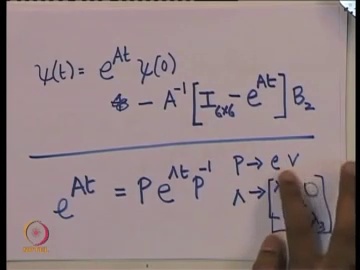 ψ(t) = e^{At} ψ(0)
- A^{-1} [I_{6×6} - e^{At}] B_2
e^{At} = P e^{Λt} P^{-1}
P → e v
Λ →